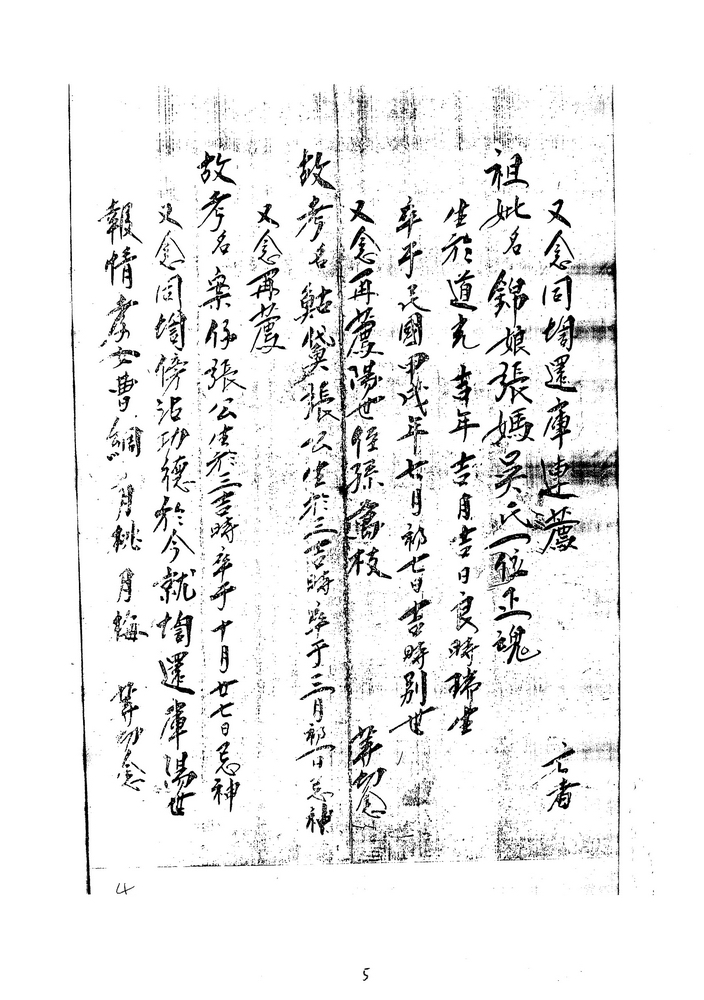 又念同壇還庫連薦
亡者
祖妣名錦娘張媽吳氏一位正魂
生於道光 年吉月吉日良時瑞生
卒乎民國甲戌年 月初七日吉時別世
又念再薦陽世侄孫 枝 等切念
故考名 張公生於三吉時卒于三月初 日忌神
又念再薦
故考名案仔張公生於三吉時卒于十月廿七日忌神
又念同壇傍沾功德於今就壇還庫陽世
報情孝女曹綢 月桃 月梅 等切念
4
5